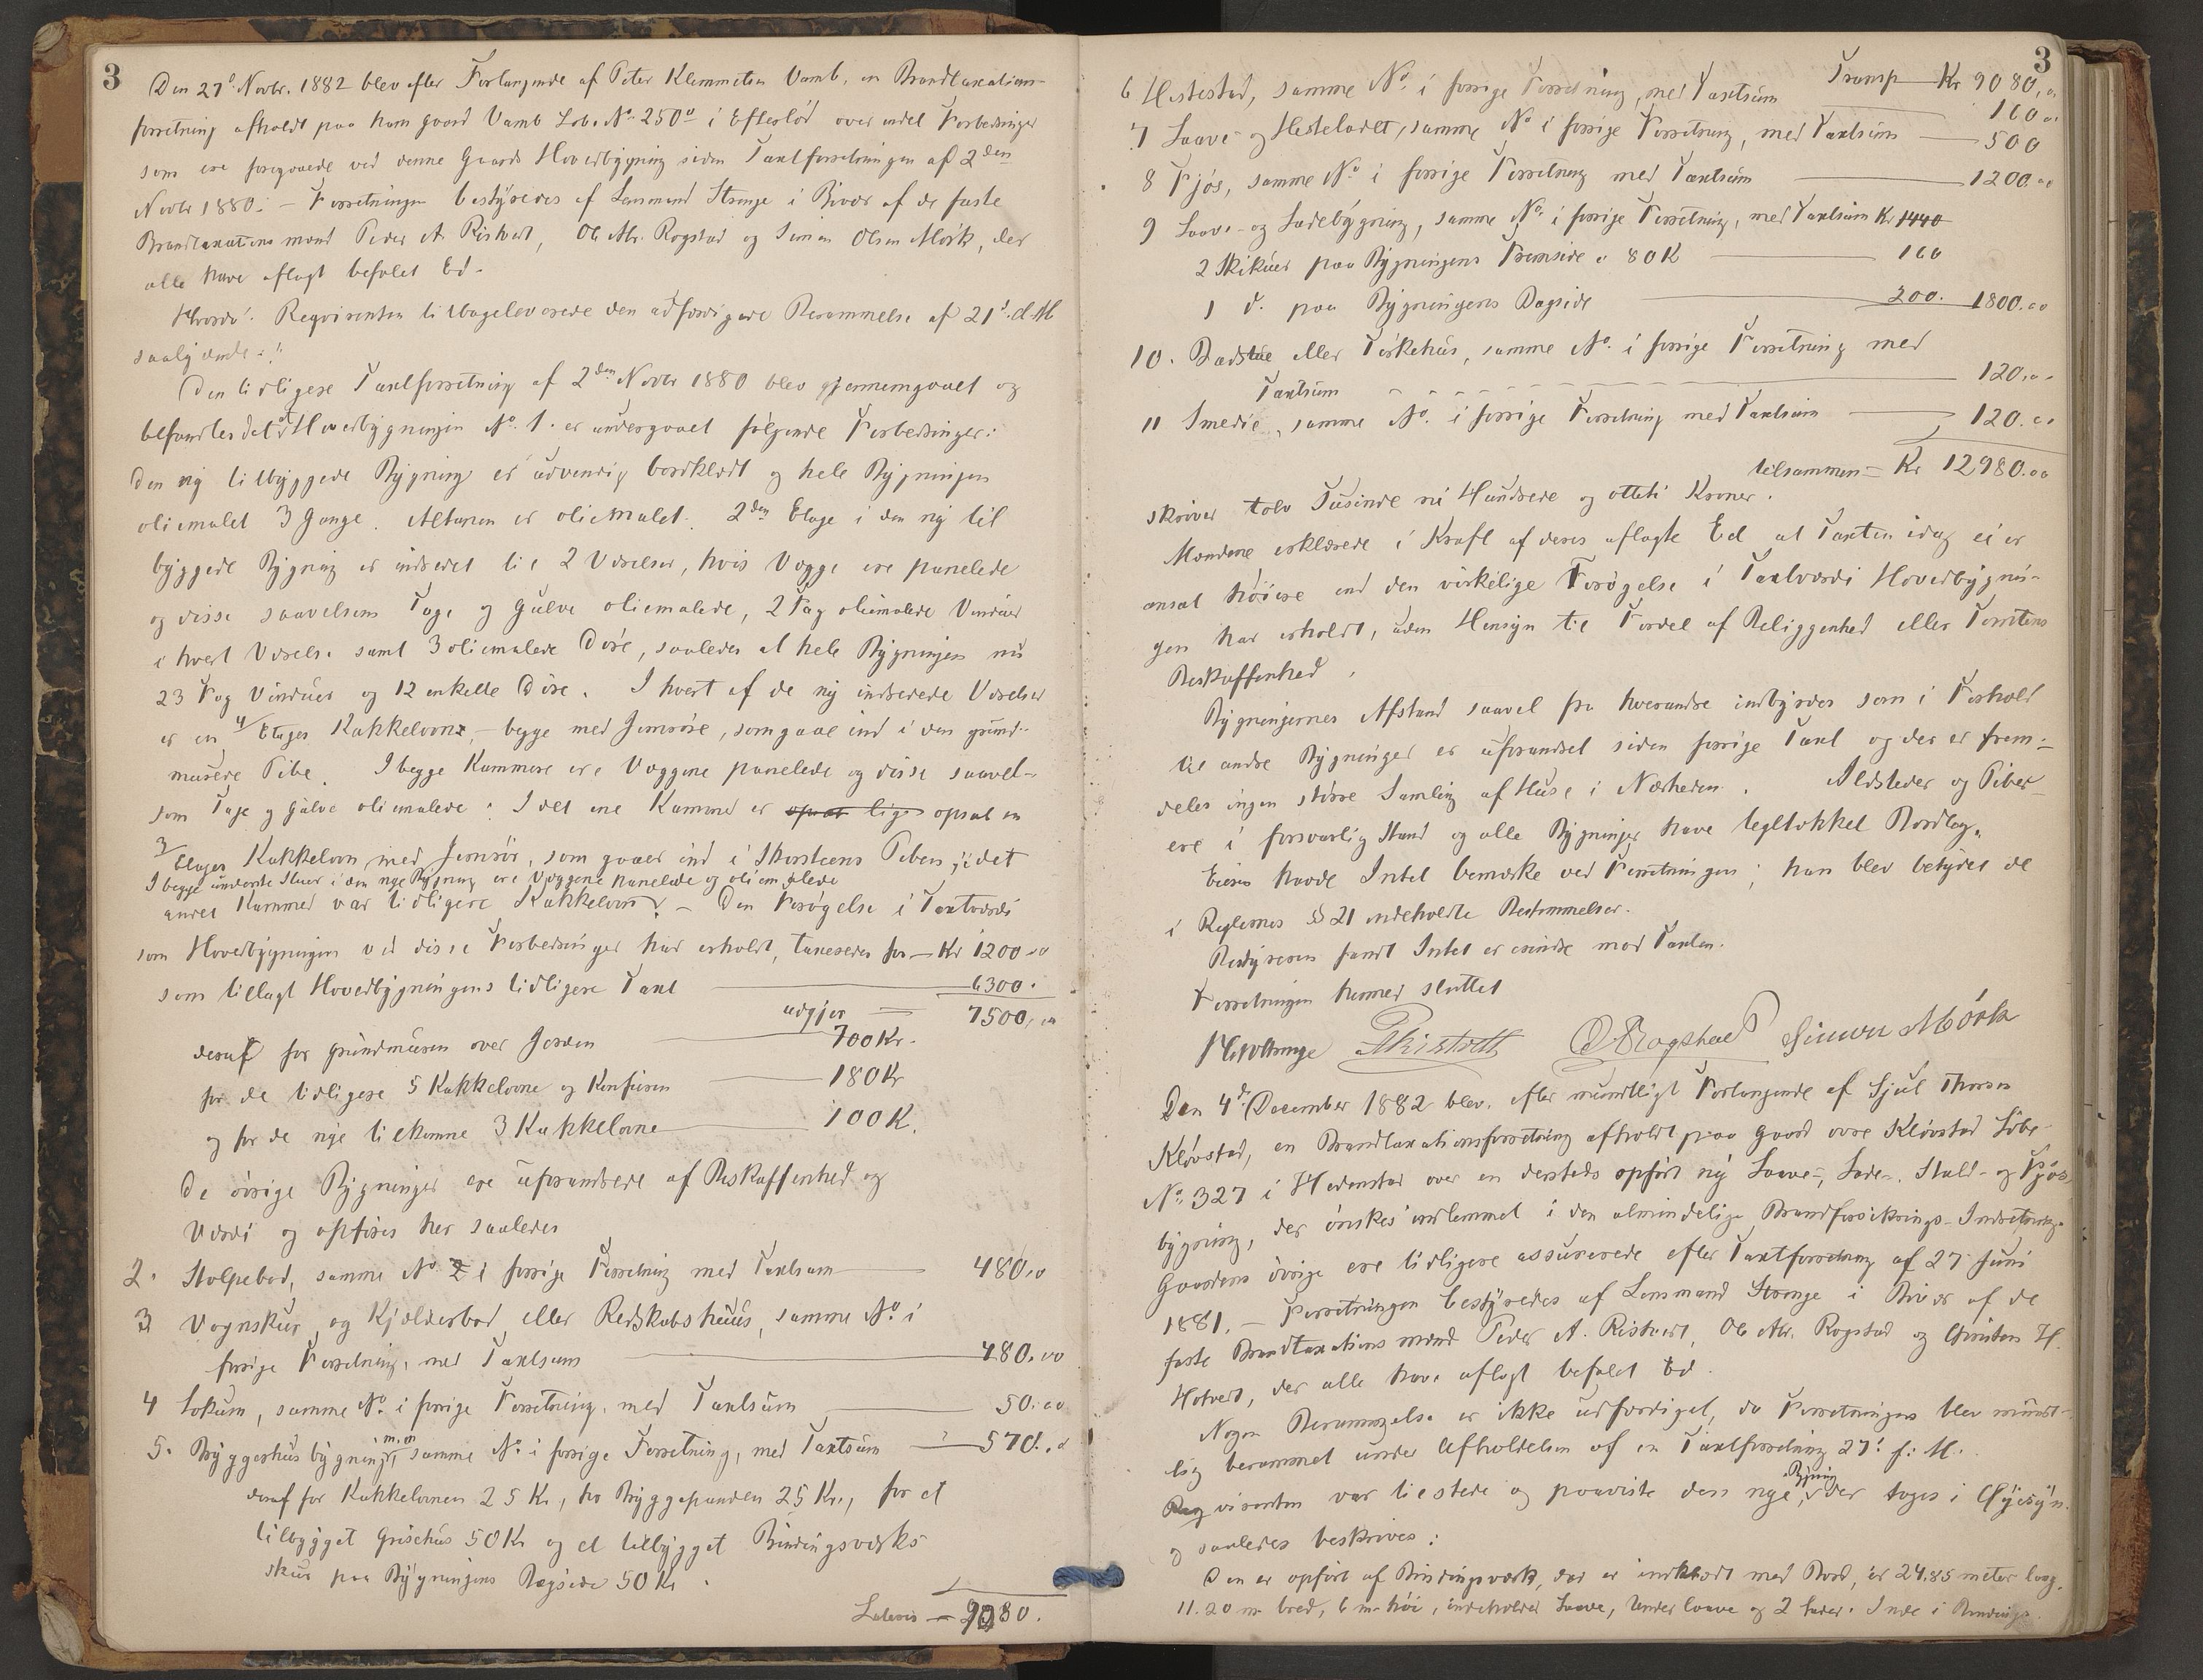 3
Den 27de Novbr. 1882 blev efter Forlangende af Peter Klemmetsen Vamb, en Brandtaxations-
forretning afholdt paa hans gaard Vamb Løb. No 250a i Efteløt over endel Forbedringer
som ere foregaaede ved denne Gaards Hovedbygning siden Taxtforretningen af 2den
Novbr 1880. – Forretningen bestyredes af Lensmand Strange i Bivær af de faste
Brandtaxationsmænd Peder A. Ristvedt, Ole Abr. Rogstad og Simen Olsen Mørk, der
alle have aflagt befalet Ed.
Hvorda! Reqvirenten tilbageleverede den udfærdigede Berammelse af 21de d.M
saalydende:!!
Den tidligere Taxtforretning af 2den Novbr 1880 blev gjennemgaaet og
befandtes det at Hovedbygningen No. 1. er undergaaet følgende Forbedringer:
Den ny tilbyggede Bygning er udvendig bordklædt og hele Bygningen
oliemalet 3 Gange. Altanen er oliemalet. 2den Etage i den ny til
byggede Bygning er indredet til 2 Værelser, hvis Vægge ere panelede
og disse saavelsom Tage og Gulve oliemalede, 2 Fag oliemalede Vinduer
i hvert Værelse samt 3 oliemalede Døre, saaledes at hele Bygningen nu
23 Fag Vinduer og 12 enkelte Døre. I hvert af de ny indredede Værelser
er en 4/ Etages Kakkelovn, – begge med Jernrøre, som gaae ind i den grund-
murede Pibe. I begge Kammere ere Væggene panelede og disse saavel-
som Tage og Gulve oliemalede. I det ene Kammer er opsat lige opsat en
3/ Etages Kakkelovn med Jernrør, som gaaer ind i Skorsteens Piben; i det
I begge underste Stuer i den nye Bygning ere Væggene panelede og oliemalede
andet Kammer var tidligere Kakkelovn. – Den Forøgelse i Taxtværdi
som Hovedbygningen ved disse Forbedringer har erholdt, taxeredes for – Kr 1200 00
som tillagt Hovedbygningens tidligere Taxt 6300.
udgjør = 7500,00
deraf for grundmuren over Jorden 700 Kr.
for de tidligere 5 Kakkelovne og Komfuren 180 Kr
og for de nye tilkomne 3 Kakkelovne 100 K.
De øvrige Bygninger ere uforandrede af Beskaffenhed og
Værdi og opføres her saaledes
2. Stolpebod, samme No 2 i forrige Forretning med Taxtsum 480,00
3 Vognskur og Kjælderbod eller Redskabshuus, samme No. i
forrige Forretning, med Taxtsum 480.00
4 Lokum, samme No. i forrige Forretning, med Taxtsum 50.00
5. Bryggerhusbygning m.m, samme No. i forrige Forretning, med Taxtsum 570.
deraf for Kakkelovnen 25 Kr, for Bryggepanden 25 Kr., for et
tilbygget Grisehus 50 Kr og et tilbygget Bindingsværks
skur paa Bygningens Bagside 50 Kr.
Lateris – 9080.
3
Transp Kr 9080,00
6 Hestestad, samme No. i forrige Forretning, med Taxtsum 160 00
7 Laave- og Hesteladet, samme No i forrige Forretning, med Taxtsum 500
8 Fjøs, samme No. i forrige Forretning med Taxtsum 1200.00
9 Laave- og Ladebygning, samme No. i forrige Forretning, med Taxtsum Kr. 1440
2 Skikuer paa Bygningens Fremside a 80 K 160
1 d. paa Bygningens Bagside 200. 1800.00
10. Badstue eller Tørkehus, samme No. i forrige Forretning med
Taxtsum 120,00
11 Smedie, samme No. i forrige Forretning med Taxtsum 120.00
tilsammen = Kr 12980.00
skriver tolv Tusinde ni Hundrede og otteti Kroner.
Mændene erklærede i Kraft af deres aflagte Ed at Taxten idag ei er
ansat høiere end den virkelige Forøgelse i Taxtværdi Hovedbygnin-
gen har erholdt, uden Hensyn til Fordel af Beliggenhed eller Tomtens
Beskaffenhed.
Bygningernes Afstand saavel fra hverandre indbyrdes som i Forhold
til andre Bygninger er uforandret siden forrige Taxt og der er frem-
deles ingen større Samling af Huse i Nærheden. Ildsteder og Piber
ere i forsvarlig Stand og alle Bygninger have tegltækket Bordtag.
Eieren havde Intet bemærke ved Forretningen; han blev betydet de
i Reglernes § 21 indeholdte Bestemmelser.
Bestyreren fandt Intet at erindre mod Taxten.
Forretningen hermed sluttet
Strange PARistvedt OARogstad Simen Mörk
Den 4de December 1882 blev, efter mundtligt Forlangende af Sjul Thorsen
Kløvstad, en Brandtaxationsforretning afholdt paa Gaard øvre Kløvstad Løbe
No. 327 i Hedenstad over en dersteds opført ny Laave-, Lade-, Stald- og Fjøs
bygning, der ønskes indlemmet i den almindelige Brandforsikrings-Indretning.
Gaardens øvrige ere tidligere assurerede efter Taxtforretning af 27 Juni
1881. – Forretningen bestyredes af Lensmand Strange i Bivær af de
faste Brandtaxationsmænd Peder A. Ristvedt, Ole Abr. Rogstad og Christen H.
Hotvedt, der alle have aflagt befalet Ed.
Nogen Berammelse er ikke udfærdiget, da Forretningen blev mundt-
lig berammet under Afholdelsen af en Taxtforretning 27. f. M.
Reqvirenten var tilstede og paaviste den nye Bygning, der toges i Øiesyn
og saaledes beskrives:
Den er opført af Bindingsværk, der er indklædt med Bord, er 24.85 meter lang,
11.20 m bred, 6 m høi, indeholder Laave, Underlaave og 2 Lader. Inde i Bindings-